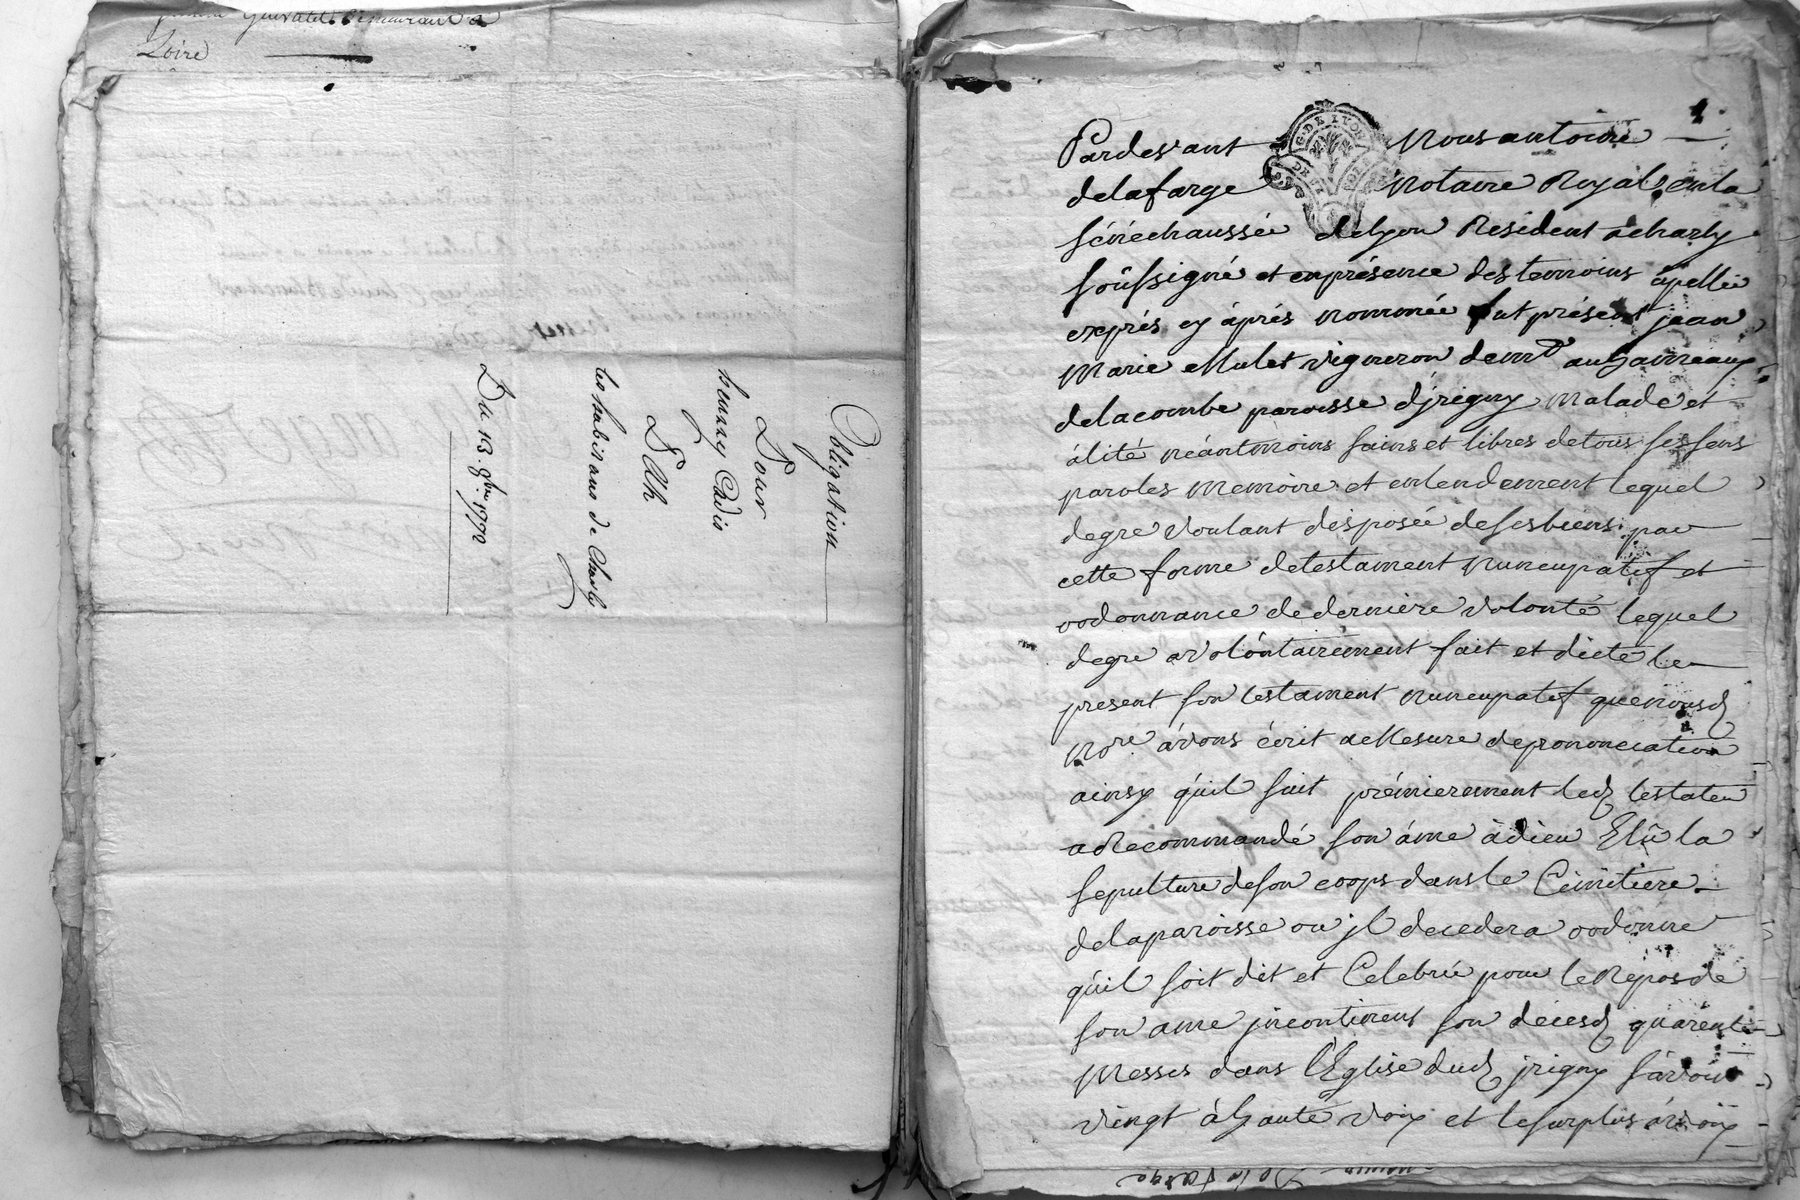 Loire
Obligation
Pour
benney Cadis
&lh
les habitans de Charly
Du 13. 9bre 1772
1
G. DE LYON
Pardevant Nous antoine
delafarge Notaire Royal en la
sénéchaussée de lyon Résident a charly
soûssigné et en présence des temoins apellée
exprés cy aprés nommée fut présent jean
Marie Mulet vigneron demt au hameaux
delacombe paroisse d'jrigny malade et
alité néantmoins sains et libres de tous ses sens
paroles memoire et entendement lequel
degre voulant disposée de ses biens par
cette forme detestament nuncupatif et
ordonnance de derniére volonté lequel
degre a volontairement fait et dicté le
present son testament nuncupatif que nousd
nore avons écrit a Mesure de prononciation
ainsy qu'il suit prémierement led testateur
a Recommandé son áme à dieu Elû la
sepulture de son corps dans le Cimitiere
de la paroisse ou jl decedera ordonne
qu'il soit dit et Celebrée pour le Repos de
son ame jncontinent son décesd quarente
Messes dans l'Eglise dud jrigny sávoir
vingt à haute voix et le surplus a voix
De la farge